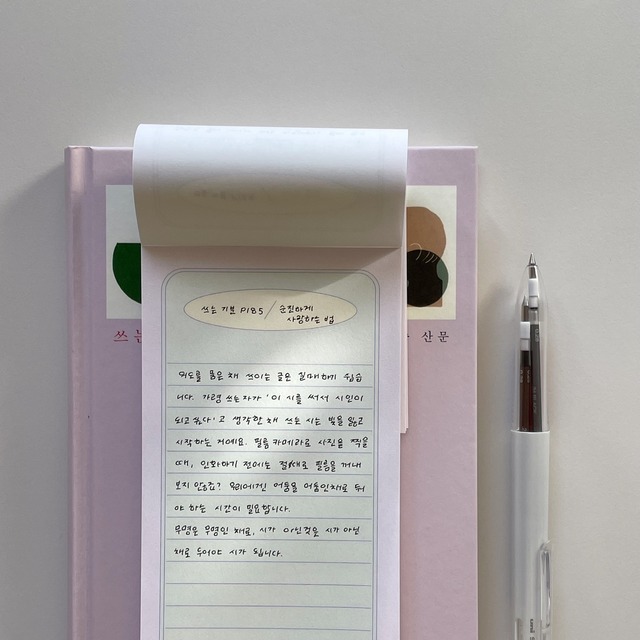 쓰는 기분 P185 / 순진하게
사랑하는 법
쓰는
산문
의도를 품은 채 쓰이는 글은 실패하기 쉽습
니다. 가령 쓰는 자가 '이 시를 써서 시인이
되고 싶다'고 생각한 채 쓰는 시는 빛을 잃고
시작하는 거예요. 필름 카메라로 사진을 찍을
때, 인화하기 전에는 절대로 필름을 꺼내
보지 않죠? 우리에겐 어둠을 어둠인채로 둬
야 하는 시간이 필요합니다.
무명은 무명인 채로, 시가 아닌것은 시가 아닌
채로 두어야 시가 됩니다.
uni